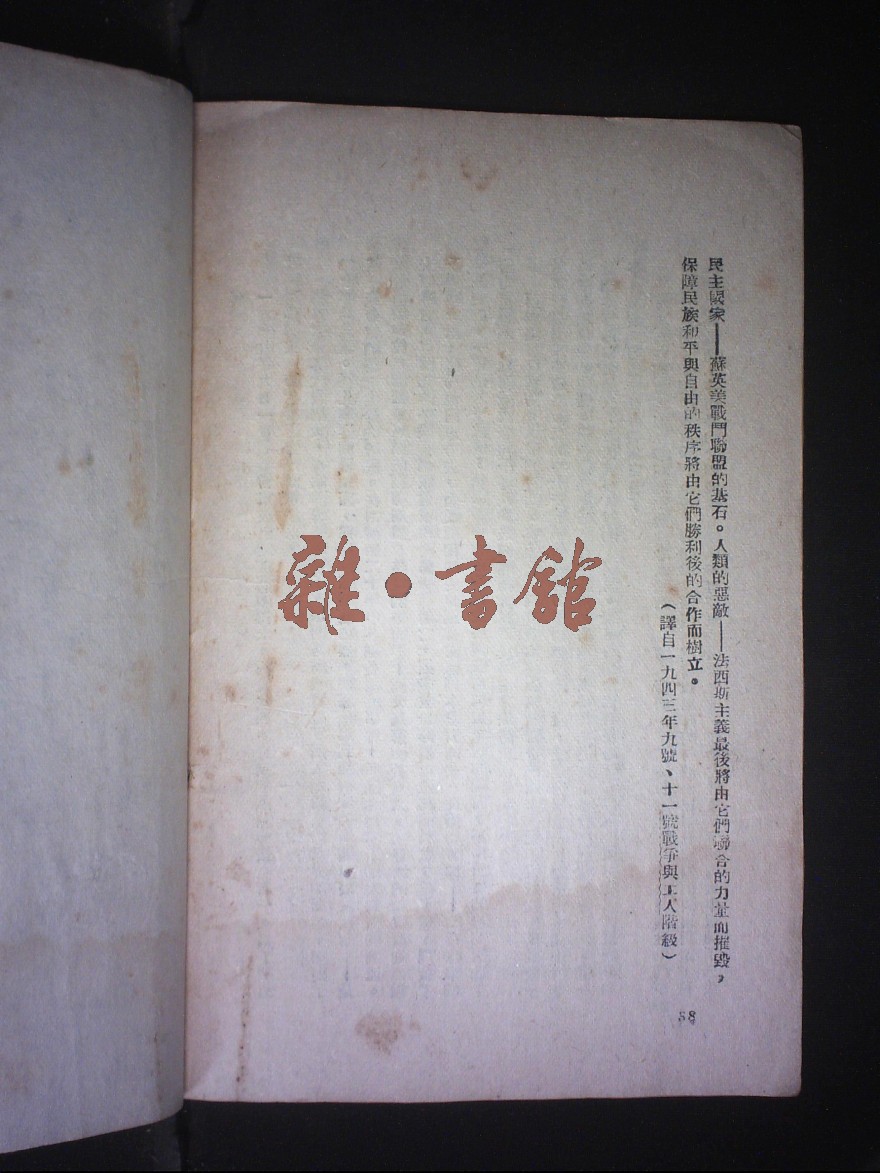 民主國家——蘇英美戰鬥聯盟的基石。人類的惡敵——法西斯主義最後將由它們聯合的力量而摧毀，
保障民族和平與自由的秩序將由它們勝利後的合作而樹立。
（譯自一九四三年九號、十一號戰爭與工人階級）
88
雜·書館